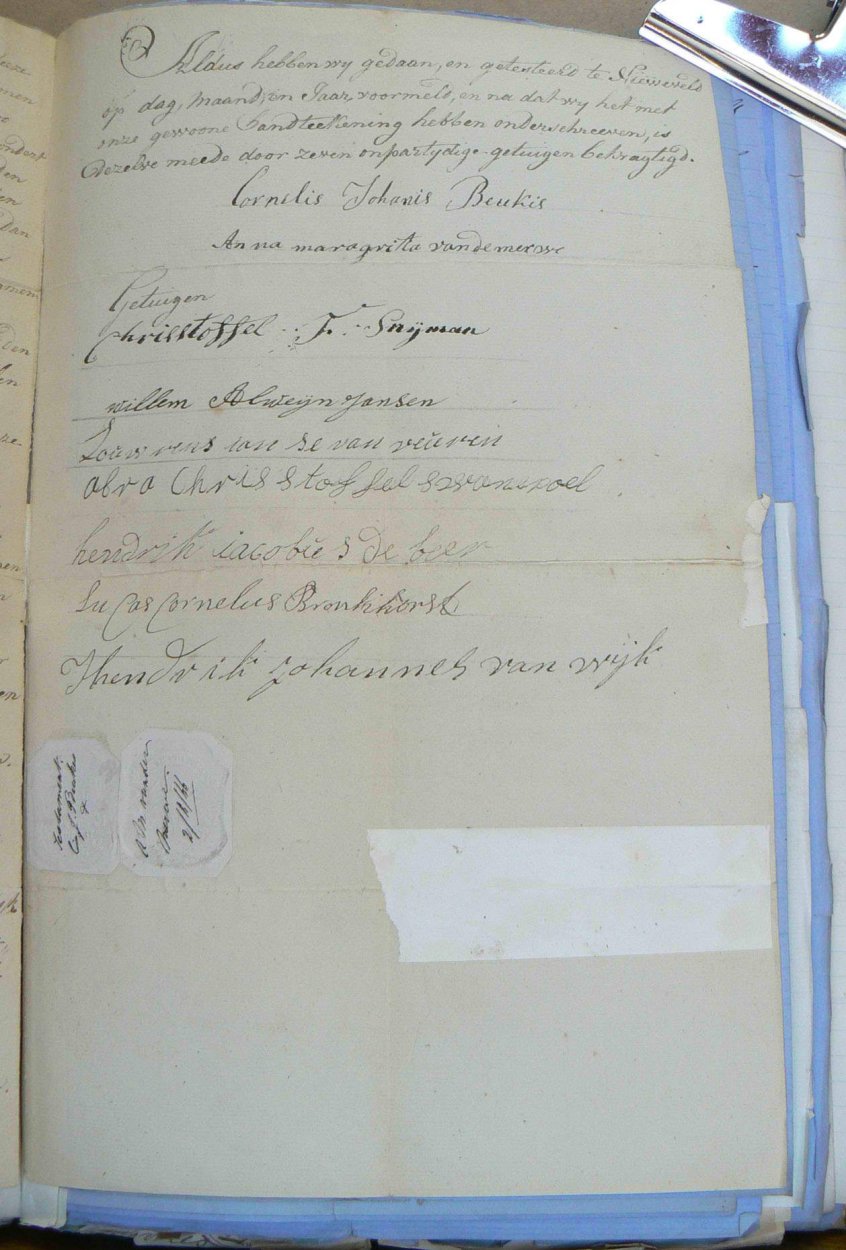 Aldus hebben wy gedaan, en getesteerd te Nieuweveld
op dag, maand, en Jaar, voormeld, en na dat wy het met
onze gewoone Handteekening hebben onderschreeven, is
Dezelve meede door zeven onpartydige getuigen bekragtigd.
Cornelis Johanis Beukis
An na maragrita vandemerwe
Getuigen
Chrisstoffel F. Snÿman
willem Alweÿn Jansen
Louw rens van
abra Chriss stoffel
hendrik iacobus De beer
Lu Cas Cornelus Bronkhorst
Hendrik Johannes van wÿk
Testament
C. J. Beukes
&
A M van der
Merwe